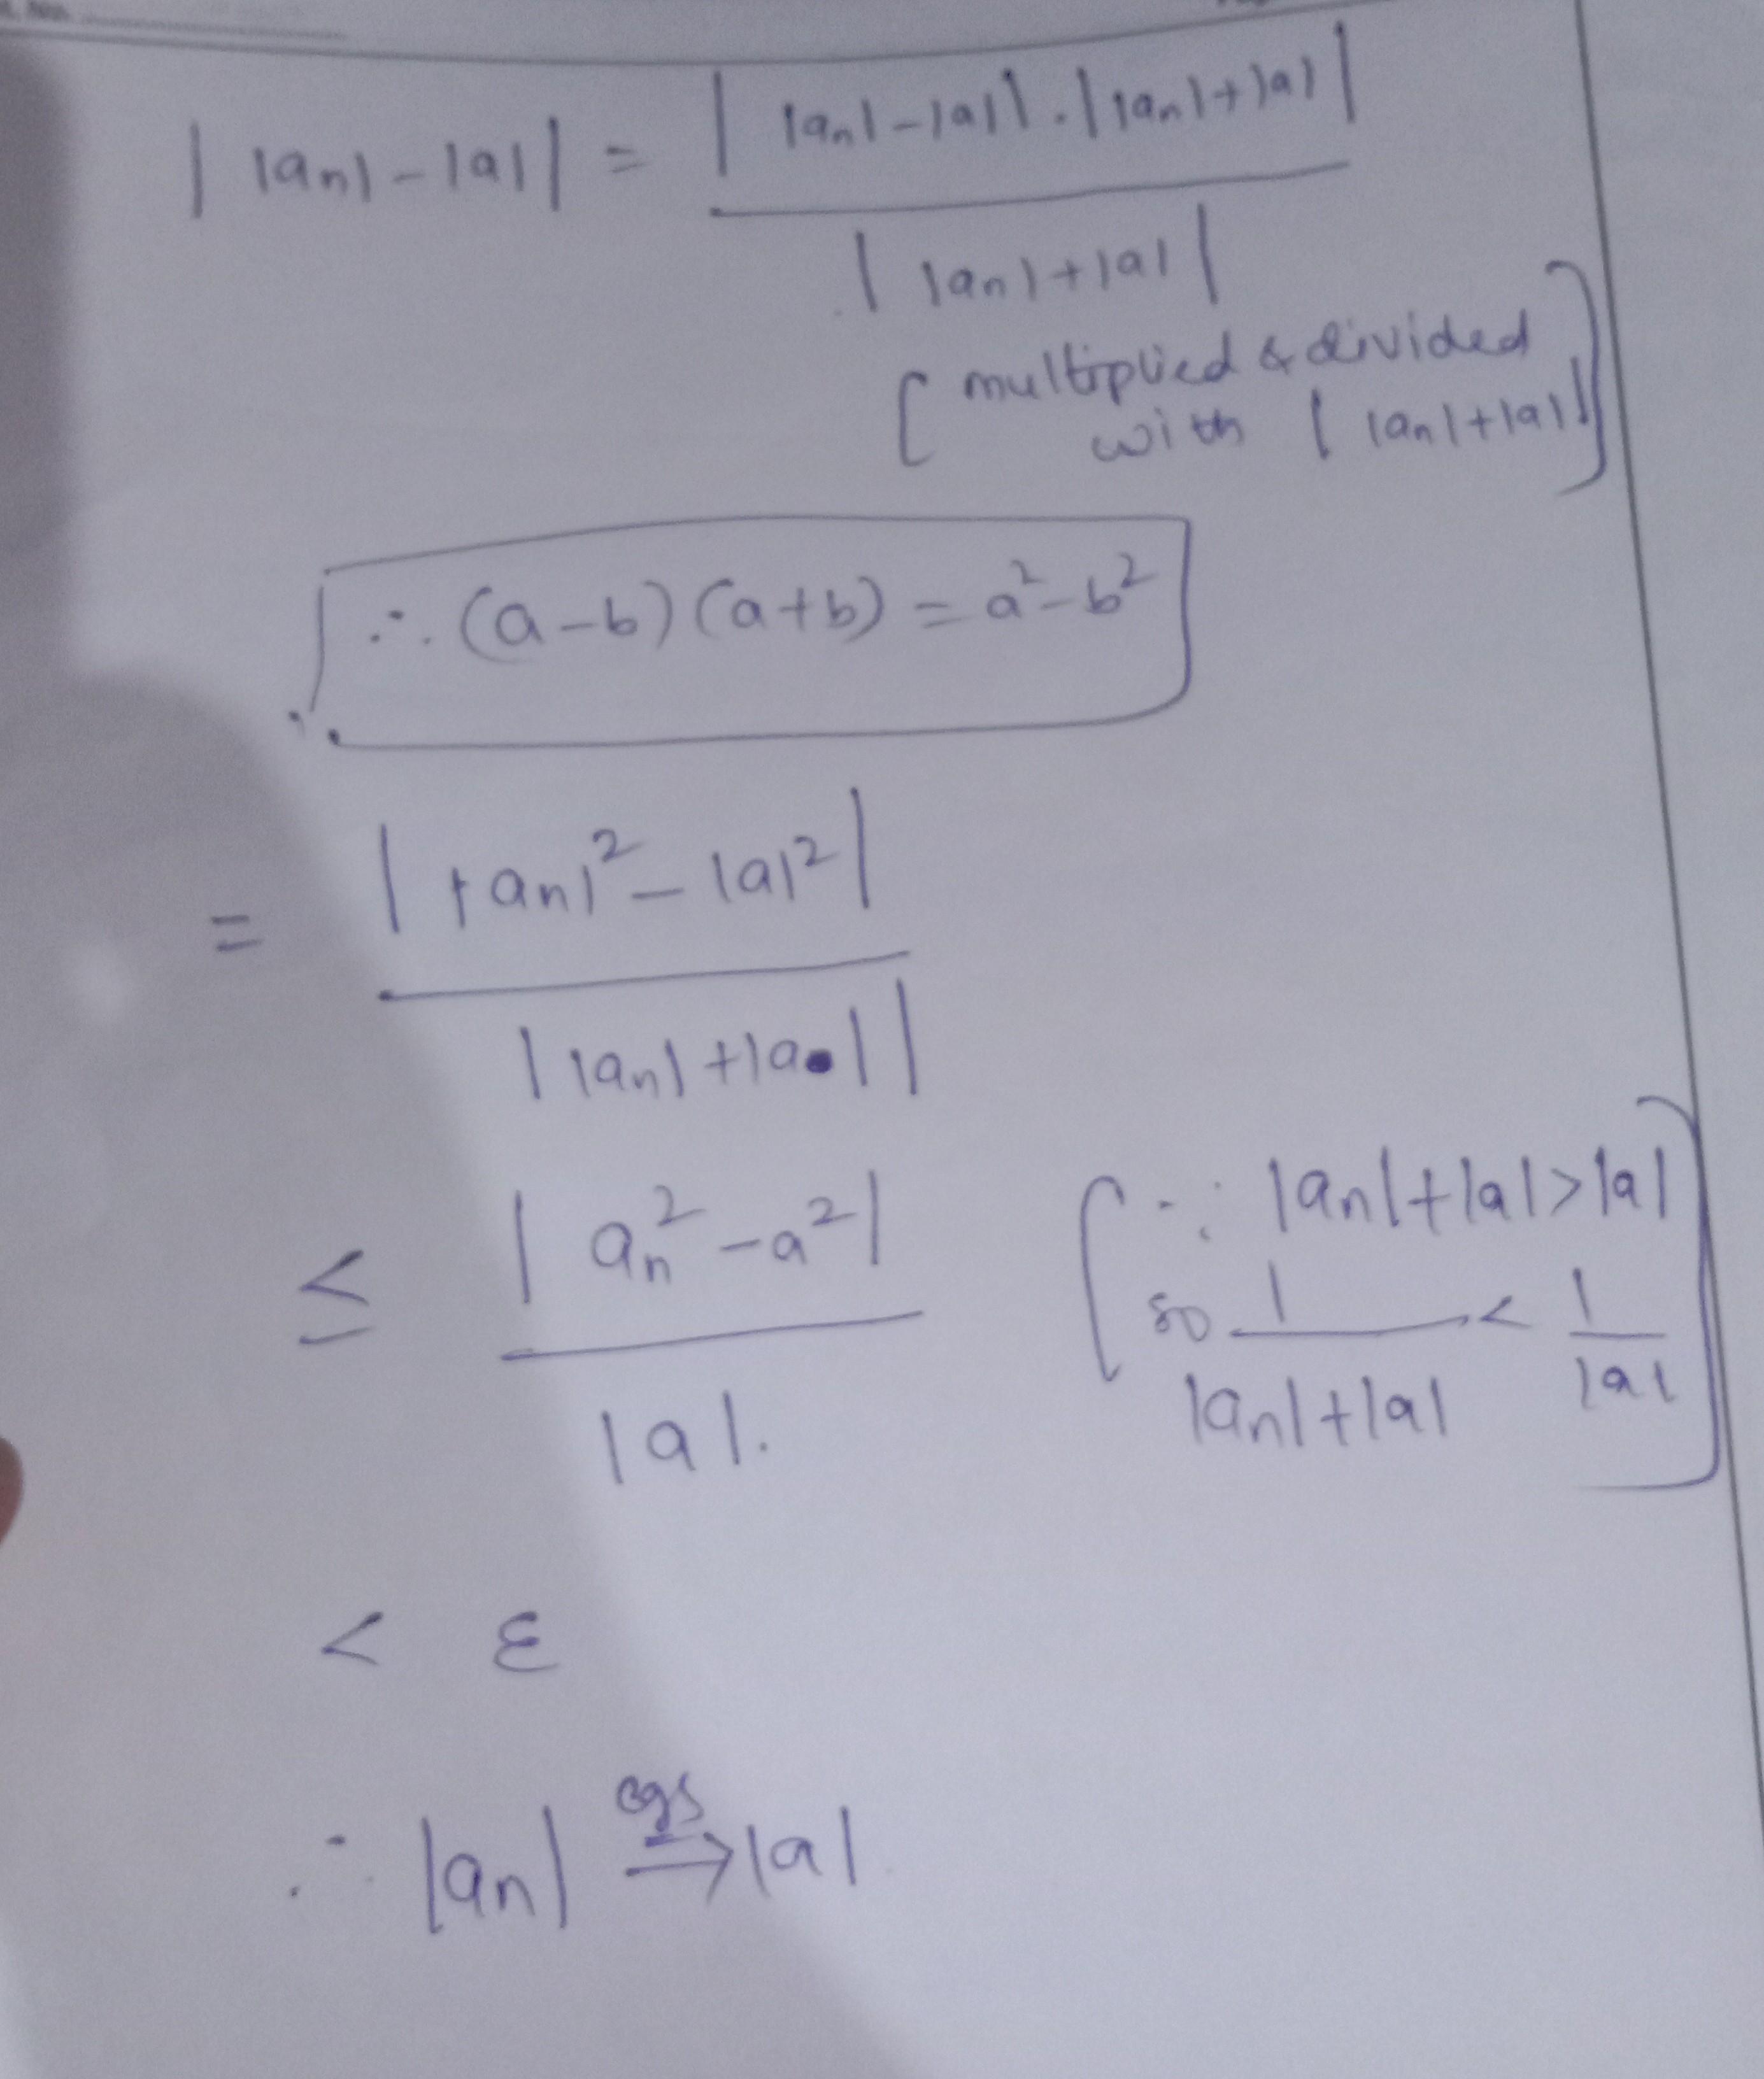 | |an| - |a| | = | |an| - |a| | . | |an| + |a| |
| |an| + |a| |
[ multiplied & divided
with | |an| + |a| | ]
∴ (a-b) (a+b) = a² - b²
= | |an|² - |a|² |
| |an| + |a| |
≤ | an² - a² | [ ∵ |an| + |a| > |a|
so 1 < 1
|a|. |an| + |a| |a| ]
< ε
∴ |an| cgs → |a|